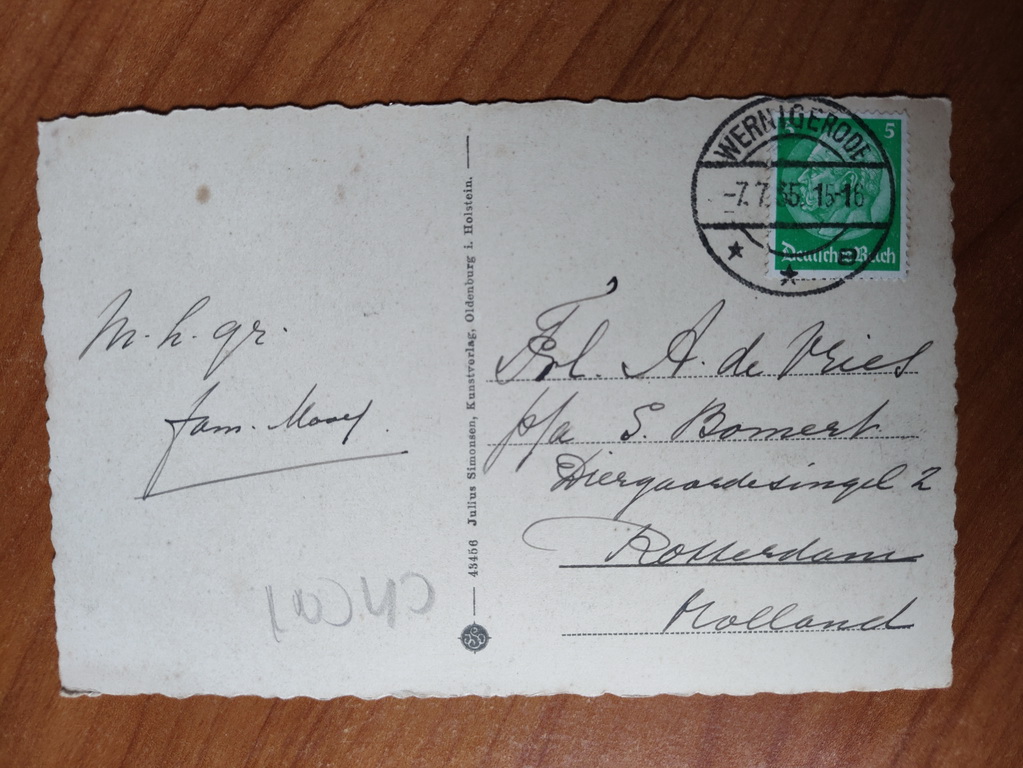 M. h. gr.
fam.
43456 Julius Simonsen, Kunstverlag, Oldenburg i. Holstein.
WERNIGERODE
-7.7.35. 15-16
5
Deutsches Reich
Frl. A. de Vries
p/a S. Bomert
Diergaardesingel 2
Rotterdam
Holland